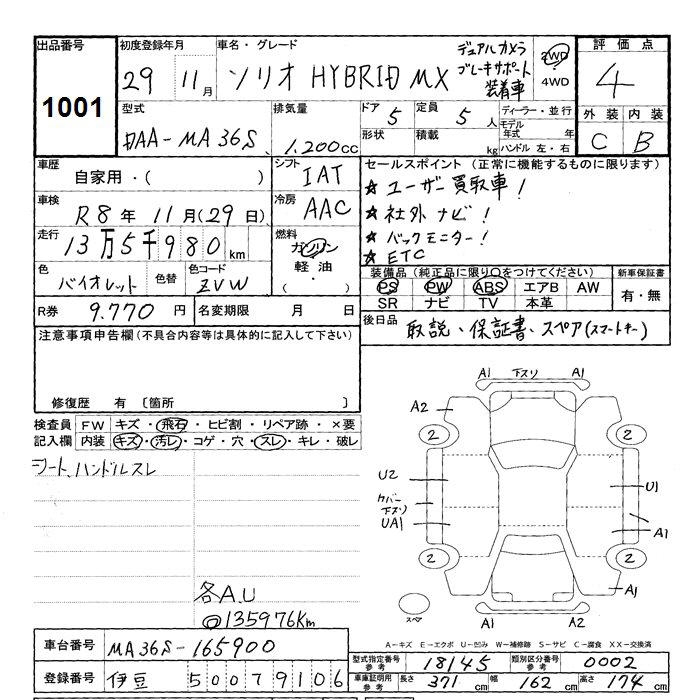 出品番号
1001
初度登録年月
29 11月
車名・グレード
ソリオ HYBRID MX
デュアルカメラ
ブレーキサポート
装着車
2WD
4WD
評価点
4
外装 内装
C B
型式
DAA-MA36S
排気量
1,200cc
ドア 5
定員 5人
形状
積載 kg
ディーラー・並行
モデル
年式 年
ハンドル 左・右
車歴
自家用・( )
シフト
IAT
車検
R8年11月(29日)
冷房
AAC
走行
13万5千980km
燃料
ガソリン
軽油
( ・ )
色
バイオレット
色替
色コード
ZVW
R券 9.770円
名変期限 月 日
セールスポイント (正常に機能するものに限ります)
☆ユーザー買取車!
☆社外ナビ!
☆バックモニター!
☆ETC
装備品(純正品に限り○をつけてください)
PS PW ABS エアB AW
SR ナビ TV 本革
新車保証書
有・無
後日品
取説、保証書、スペア(スマートキー)
注意事項申告欄(不具合内容等は具体的に記入して下さい)
修復歴 有 〔箇所 〕
検査員
記入欄
FW キズ・飛石・ヒビ割・リペア跡・×要
内装 キズ・汚レ・コゲ・穴・スレ・キレ・破レ
シート、ハンドルスレ
各A.U
@135976Km
A1 下スリ A1
A2
2 2
U2
カバー
下スリ
UA1
U1
A1
2 2
A1
スペア
A1 A2
A-キズ E-エクボ U-凹み W-補修跡 S-サビ C-腐食 XX-交換済
車台番号 MA36S-165900
登録番号 伊豆 500 79106
型式指定番号
参考
18145
類別区分番号
参考
0002
車庫証明用
参考
長さ 371cm 幅 162cm 高さ 174cm